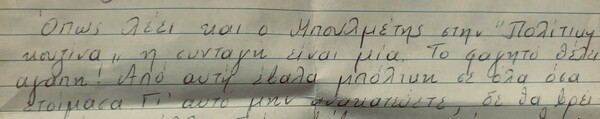 Όπως λέει και ο Μπουλμέτης στην "Πολίτικη
κουζίνα„ η συνταγή είναι μία. Το φαγητό θέλει
αγάπη! Από αυτή έβαλα μπόλικη σε όλα όσα
ετοίμασα Γι' αυτό μην ανακατώνετε, δε θα βρεί